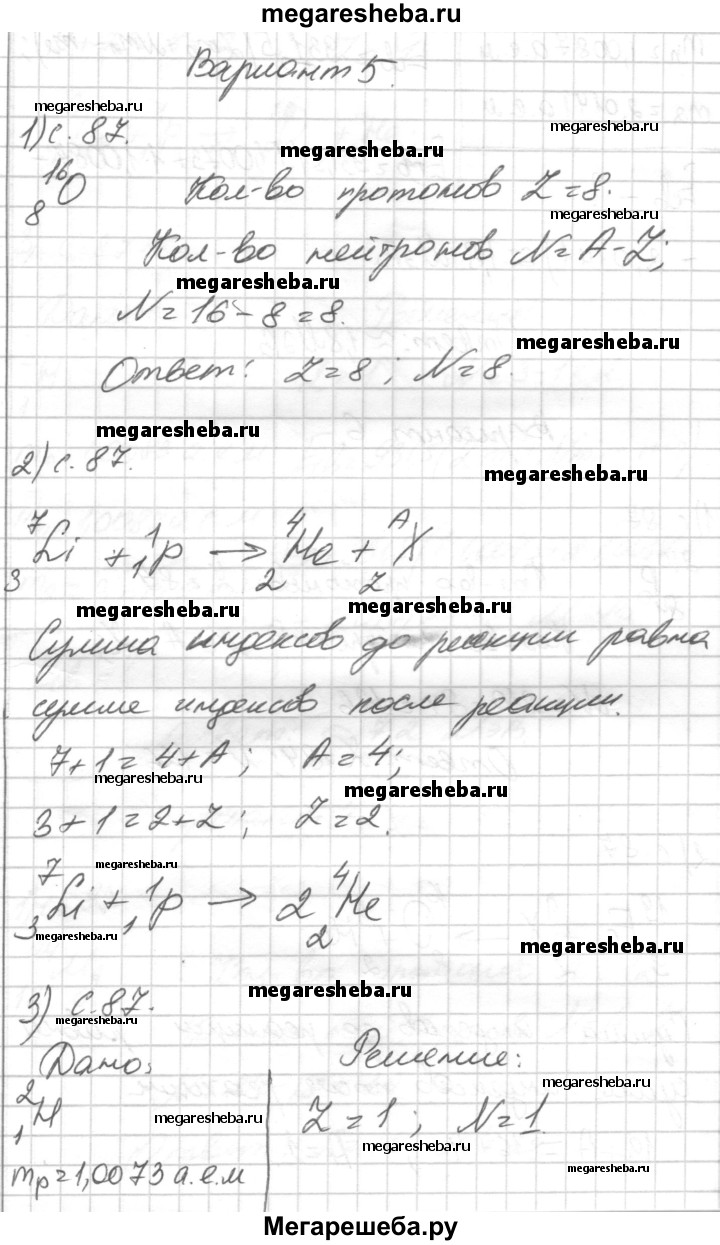 megaresheba.ru
Вариант 5.
megaresheba.ru
megaresheba.ru
1) с. 87.
megaresheba.ru
¹⁶₈O Кол-во протонов Z = 8.
megaresheba.ru
Кол-во нейтронов N = A - Z;
megaresheba.ru
N = 16 - 8 = 8.
megaresheba.ru
Ответ: Z = 8; N = 8.
megaresheba.ru
2) с. 87.
megaresheba.ru
⁷₃Li + ¹₁p → ⁴₂He + ᴬ_Z X
megaresheba.ru
megaresheba.ru
Сумма индексов до реакции равна
сумме индексов после реакции.
7 + 1 = 4 + A; A = 4;
megaresheba.ru
megaresheba.ru
3 + 1 = 2 + Z; Z = 2.
megaresheba.ru
⁷₃Li + ¹₁p → 2 ⁴₂He
megaresheba.ru
megaresheba.ru
megaresheba.ru
3) с. 87.
megaresheba.ru
Дано: Решение:
megaresheba.ru
²₁H Z = 1; N = 1.
megaresheba.ru
megaresheba.ru
megaresheba.ru
mₚ = 1,0073 а.е.м
Мегарешеба.ру